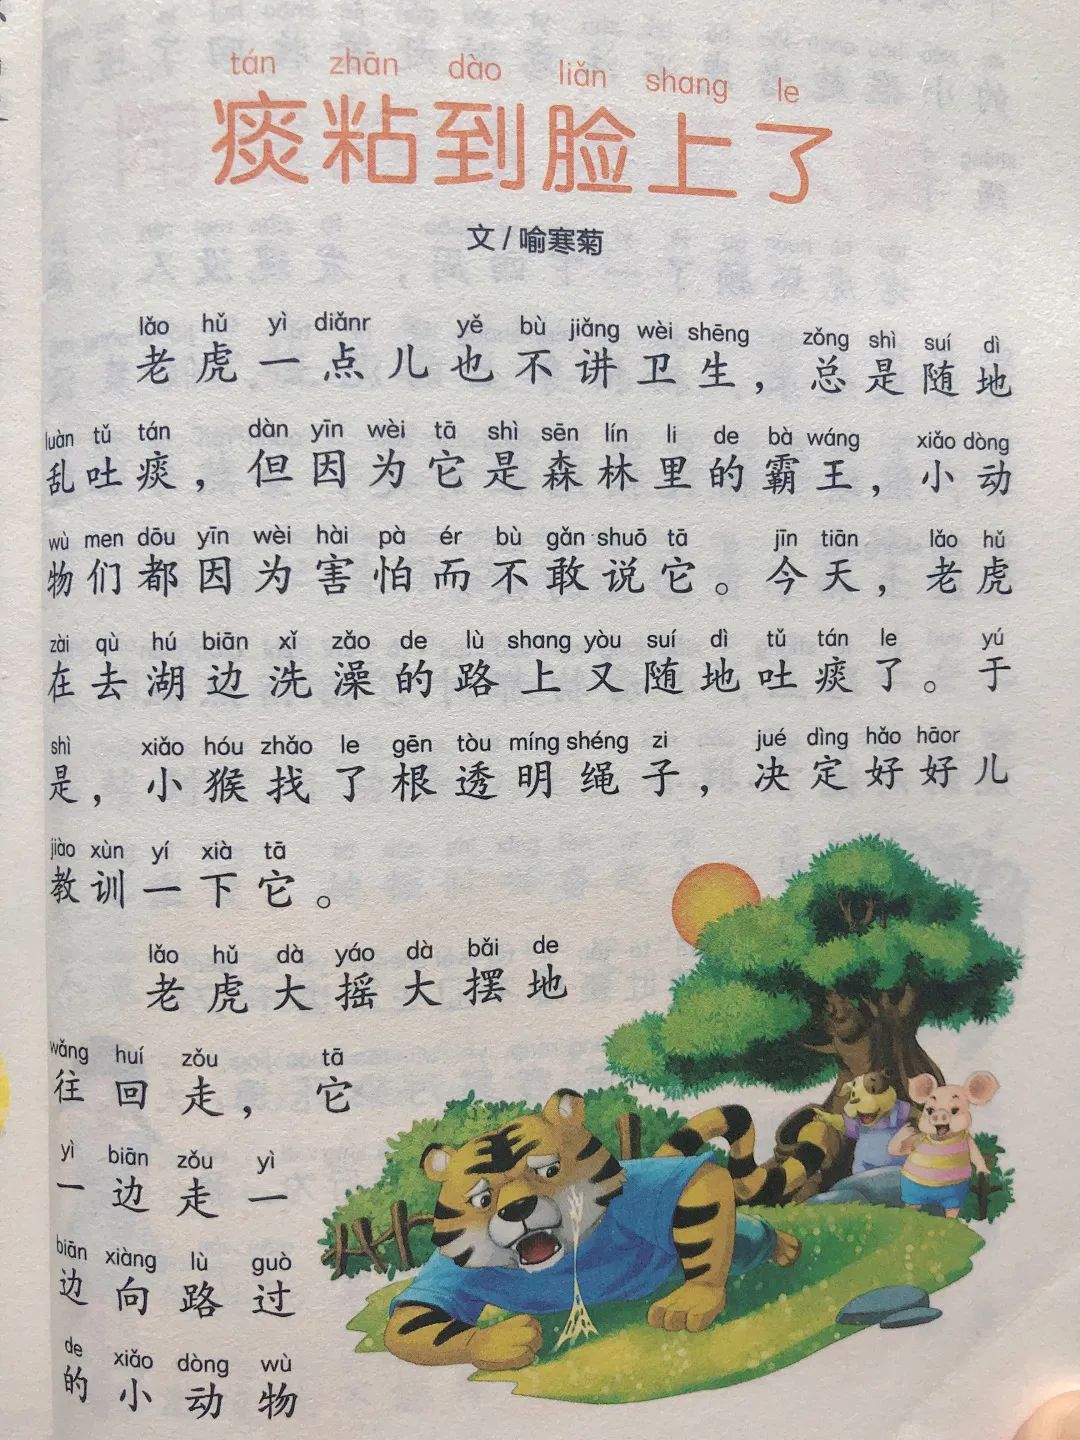 tán zhān dào liǎn shang le
痰粘到脸上了
文/喻寒菊
lǎo hǔ yì diǎnr yě bù jiǎng wèi shēng zǒng shì suí dì
老虎一点儿也不讲卫生，总是随地
luàn tǔ tán dàn yīn wèi tā shì sēn lín li de bà wáng xiǎo dòng
乱吐痰，但因为它是森林里的霸王，小动
wù men dōu yīn wèi hài pà ér bù gǎn shuō tā jīn tiān lǎo hǔ
物们都因为害怕而不敢说它。今天，老虎
zài qù hú biān xǐ zǎo de lù shang yòu suí dì tǔ tán le yú
在去湖边洗澡的路上又随地吐痰了。于
shì xiǎo hóu zhǎo le gēn tòu míng shéng zi jué dìng hǎo hāor
是，小猴找了根透明绳子，决定好好儿
jiào xùn yí xià tā
教训一下它。
lǎo hǔ dà yáo dà bǎi de
老虎大摇大摆地
wǎng huí zǒu tā
往回走，它
yì biān zǒu yì
一边走一
biān xiàng lù guò
边向路过
de xiǎo dòng wù
的小动物